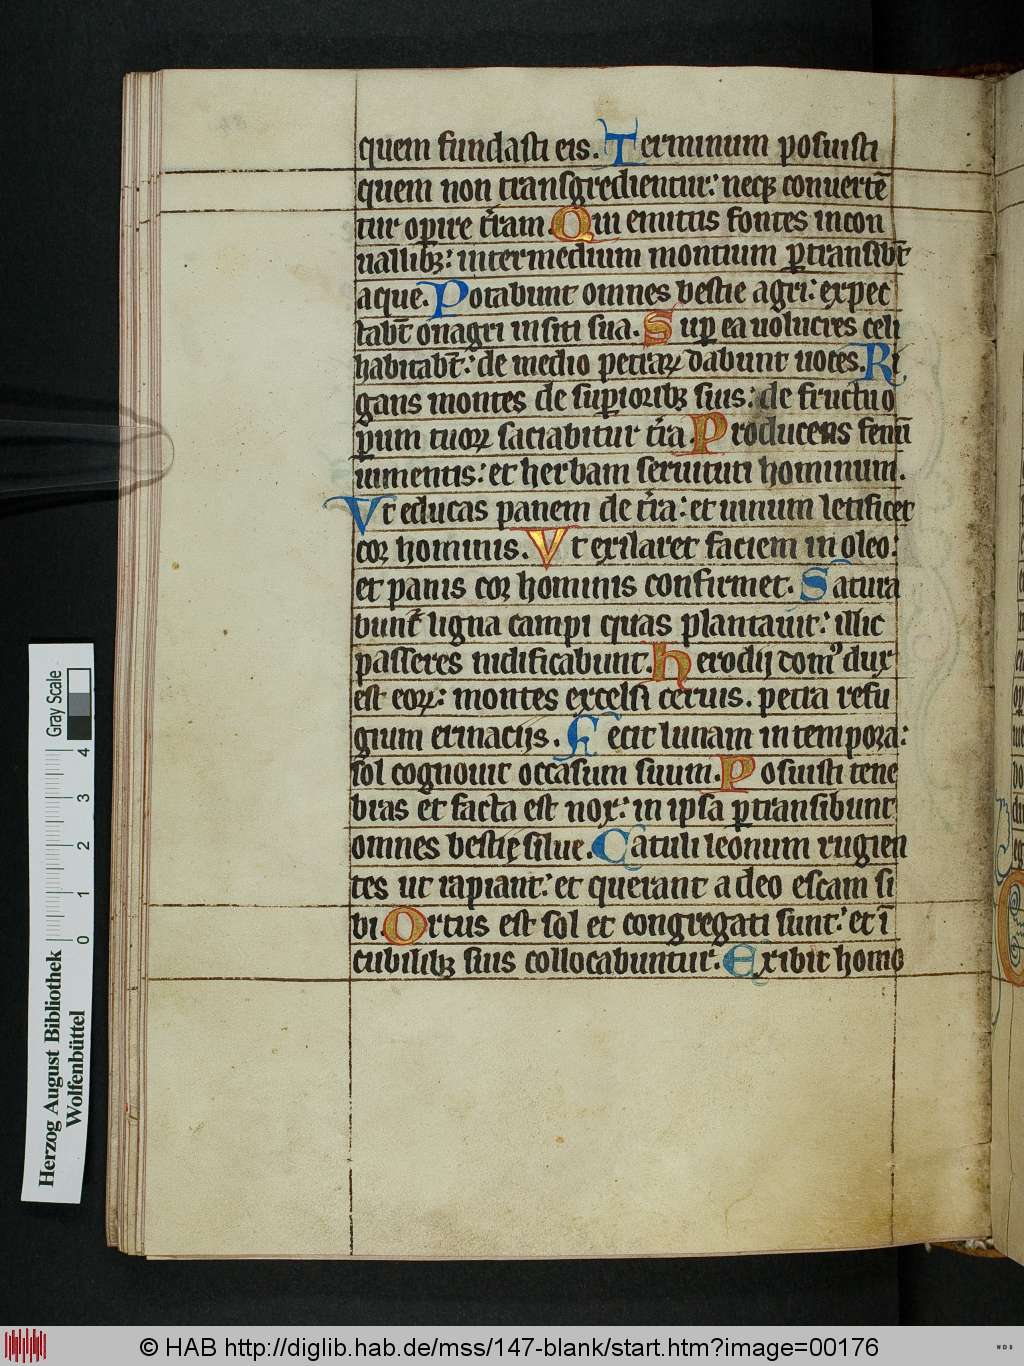 quem fundasti eis. Terminum posuisti
quem non transgredientur: neqꝫ conuertē
tur opire t̄ram. Qui emittis fontes in con
uallibꝫ: inter medium montium ꝑtransibt̄
aque. Potabunt omnes bestie agri: expec
tabt̄ onagri in siti sua. Suꝑ ea uolucres celi
habitabt̄: de medio petraꝝ dabunt uoces. Ri
gans montes de suꝑioribꝫ suis: de fructu o
ꝑum tuoꝝ saciabitur t̄ra. Producens fenū
iumentis: et herbam seruituti hominum.
Vt educas panem de t̄ra: et uinum letificet
cor hominis. Vt exilaret faciem in oleo:
et panis cor hominis confirmet. Satura
bunt̄ ligna campi quas plantauit: illic
passeres nidificabunt. Herodij domꝰ dux
est eoꝝ: montes excelsi ceruis. petra refu
gium erinacijs. Fecit lunam in tempora:
sol cognouit occasum suum. Posuisti tene
bras et facta est nox: in ipsa ꝑtransibunt
omnes bestię silue. Catuli leonum rugien
tes ut rapiant: et querant a deo escam si
bi. Ortus est sol et congregati sunt: et ī
cubilibꝫ suis collocabuntur. Exibit homo
Gray Scale
4
3
2
1
0
Herzog August Bibliothek
Wolfenbüttel
© HAB http://diglib.hab.de/mss/147-blank/start.htm?image=00176
WDB